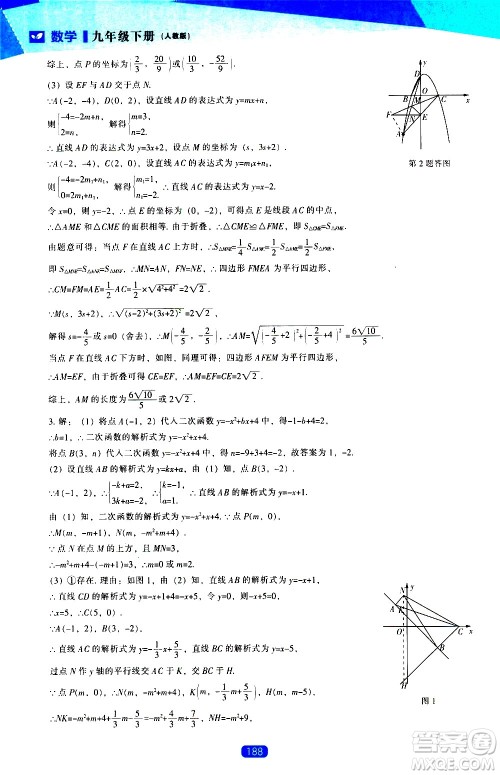 数学 九年级下册 (人教版)
综上，点 P 的坐标为(2/3, 20/9)或(10/3, -52/9).
(3) 设 EF 与 AD 交于点 N.
∵A(-2, -4)，D(0, 2)，设直线 AD 的表达式为 y=mx+n,
则{-4=-2m+n, n=2. 解得{m=3, n=2.
∴直线 AD 的表达式为 y=3x+2，设点 M 的坐标为 (s, 3s+2),
∵A(-2, -4)，C(2, 0)，设直线 AC 的表达式为 y=m₁x+n₁,
则{-4=-2m₁+n₁, 0=2m₁+n₁. 解得{m₁=1, n₁=-2. ∴直线 AC 的表达式为 y=x-2.
令 x=0，则 y=-2，∴点 E 的坐标为 (0, -2)，可得：点 E 是线段 AC 的中点，
∴△AME 和 △CME 的面积相等. 由于折叠，∴△CME≌△FME，即 S△CME=S△FME,
由题意可得：当点 F 在直线 AC 上方时，∴S△MNE=1/4 S△AMC=1/2 S△AME=1/2 S△FME,
即 S△MNE=S△ANE=S△MNF，∴MN=AN，FN=NE，∴四边形 FMEA 为平行四边形，
∴CM=FM=AE=1/2 AC=1/2×√4²+4²=2√2.
∵M(s, 3s+2)，∴√(s-2)²+(3s+2)²=2√2,
解得 s=-4/5 或 s=0（舍去），∴M(-4/5, -2/5)，∴AM=√(-4/5+2)²+(-2/5+4)²=6√10/5.
当点 F 在直线 AC 下方时，如图，同理可得：四边形 AFEM 为平行四边形，
∴AM=EF，由于折叠可得 CE=EF，∴AM=CE=2√2.
综上，AM 的长度为 6√10/5 或 2√2.
3. 解：(1) 将点 A(-1, -2) 代入二次函数 y=-x²+bx+4 中，得 -1-b+4=2,
∴b=1，∴二次函数的解析式为 y=-x²+x+4.
将点 B(3, n) 代入二次函数 y=-x²+x+4 中，得 n=-9+3+4=-2. 故答案为 1, -2.
(2) 设直线 AB 的解析式为 y=kx+a,
∵A(-1, 2)，B(3, -2)，∴{-k+a=2, 3k+a=-2, ∴{k=-1, a=1, ∴直线 AB 的解析式为 y=-x+1.
由 (1) 知，二次函数的解析式为 y=-x²+x+4. ∵点 P(m, 0),
∴M(m, -m+1)，N(m, -m²+m+4).
∵点 N 在点 M 的上方，且 MN=3，
∴-m²+m+4-(-m+1)=3，∴m=0 或 m=2.
(3) ①存在. 理由：如图 1，由 (2) 知，直线 AB 的解析式为 y=-x+1,
∴直线 CD 的解析式为 y=-x+1+4=-x+5，令 y=0，则 -x+5=0,
∴x=5，∴C(5, 0). ∵A(-1, 2)，B(3, -2),
∴直线 AC 的解析式为 y=-1/3x+5/3，直线 BC 的解析式为 y=x-5,
过点 N 作 y 轴的平行线交 AC 于 K，交 BC 于 H.
∵点 P(m, 0)，∴N(m, -m²+m+4)，K(m, -1/3m+5/3)，H(m, m-5),
∴NK=-m²+m+4+1/3m-5/3=-m²+4/3m+7/3,
第2题答图
图1
188
答案圈
MXQE.COM